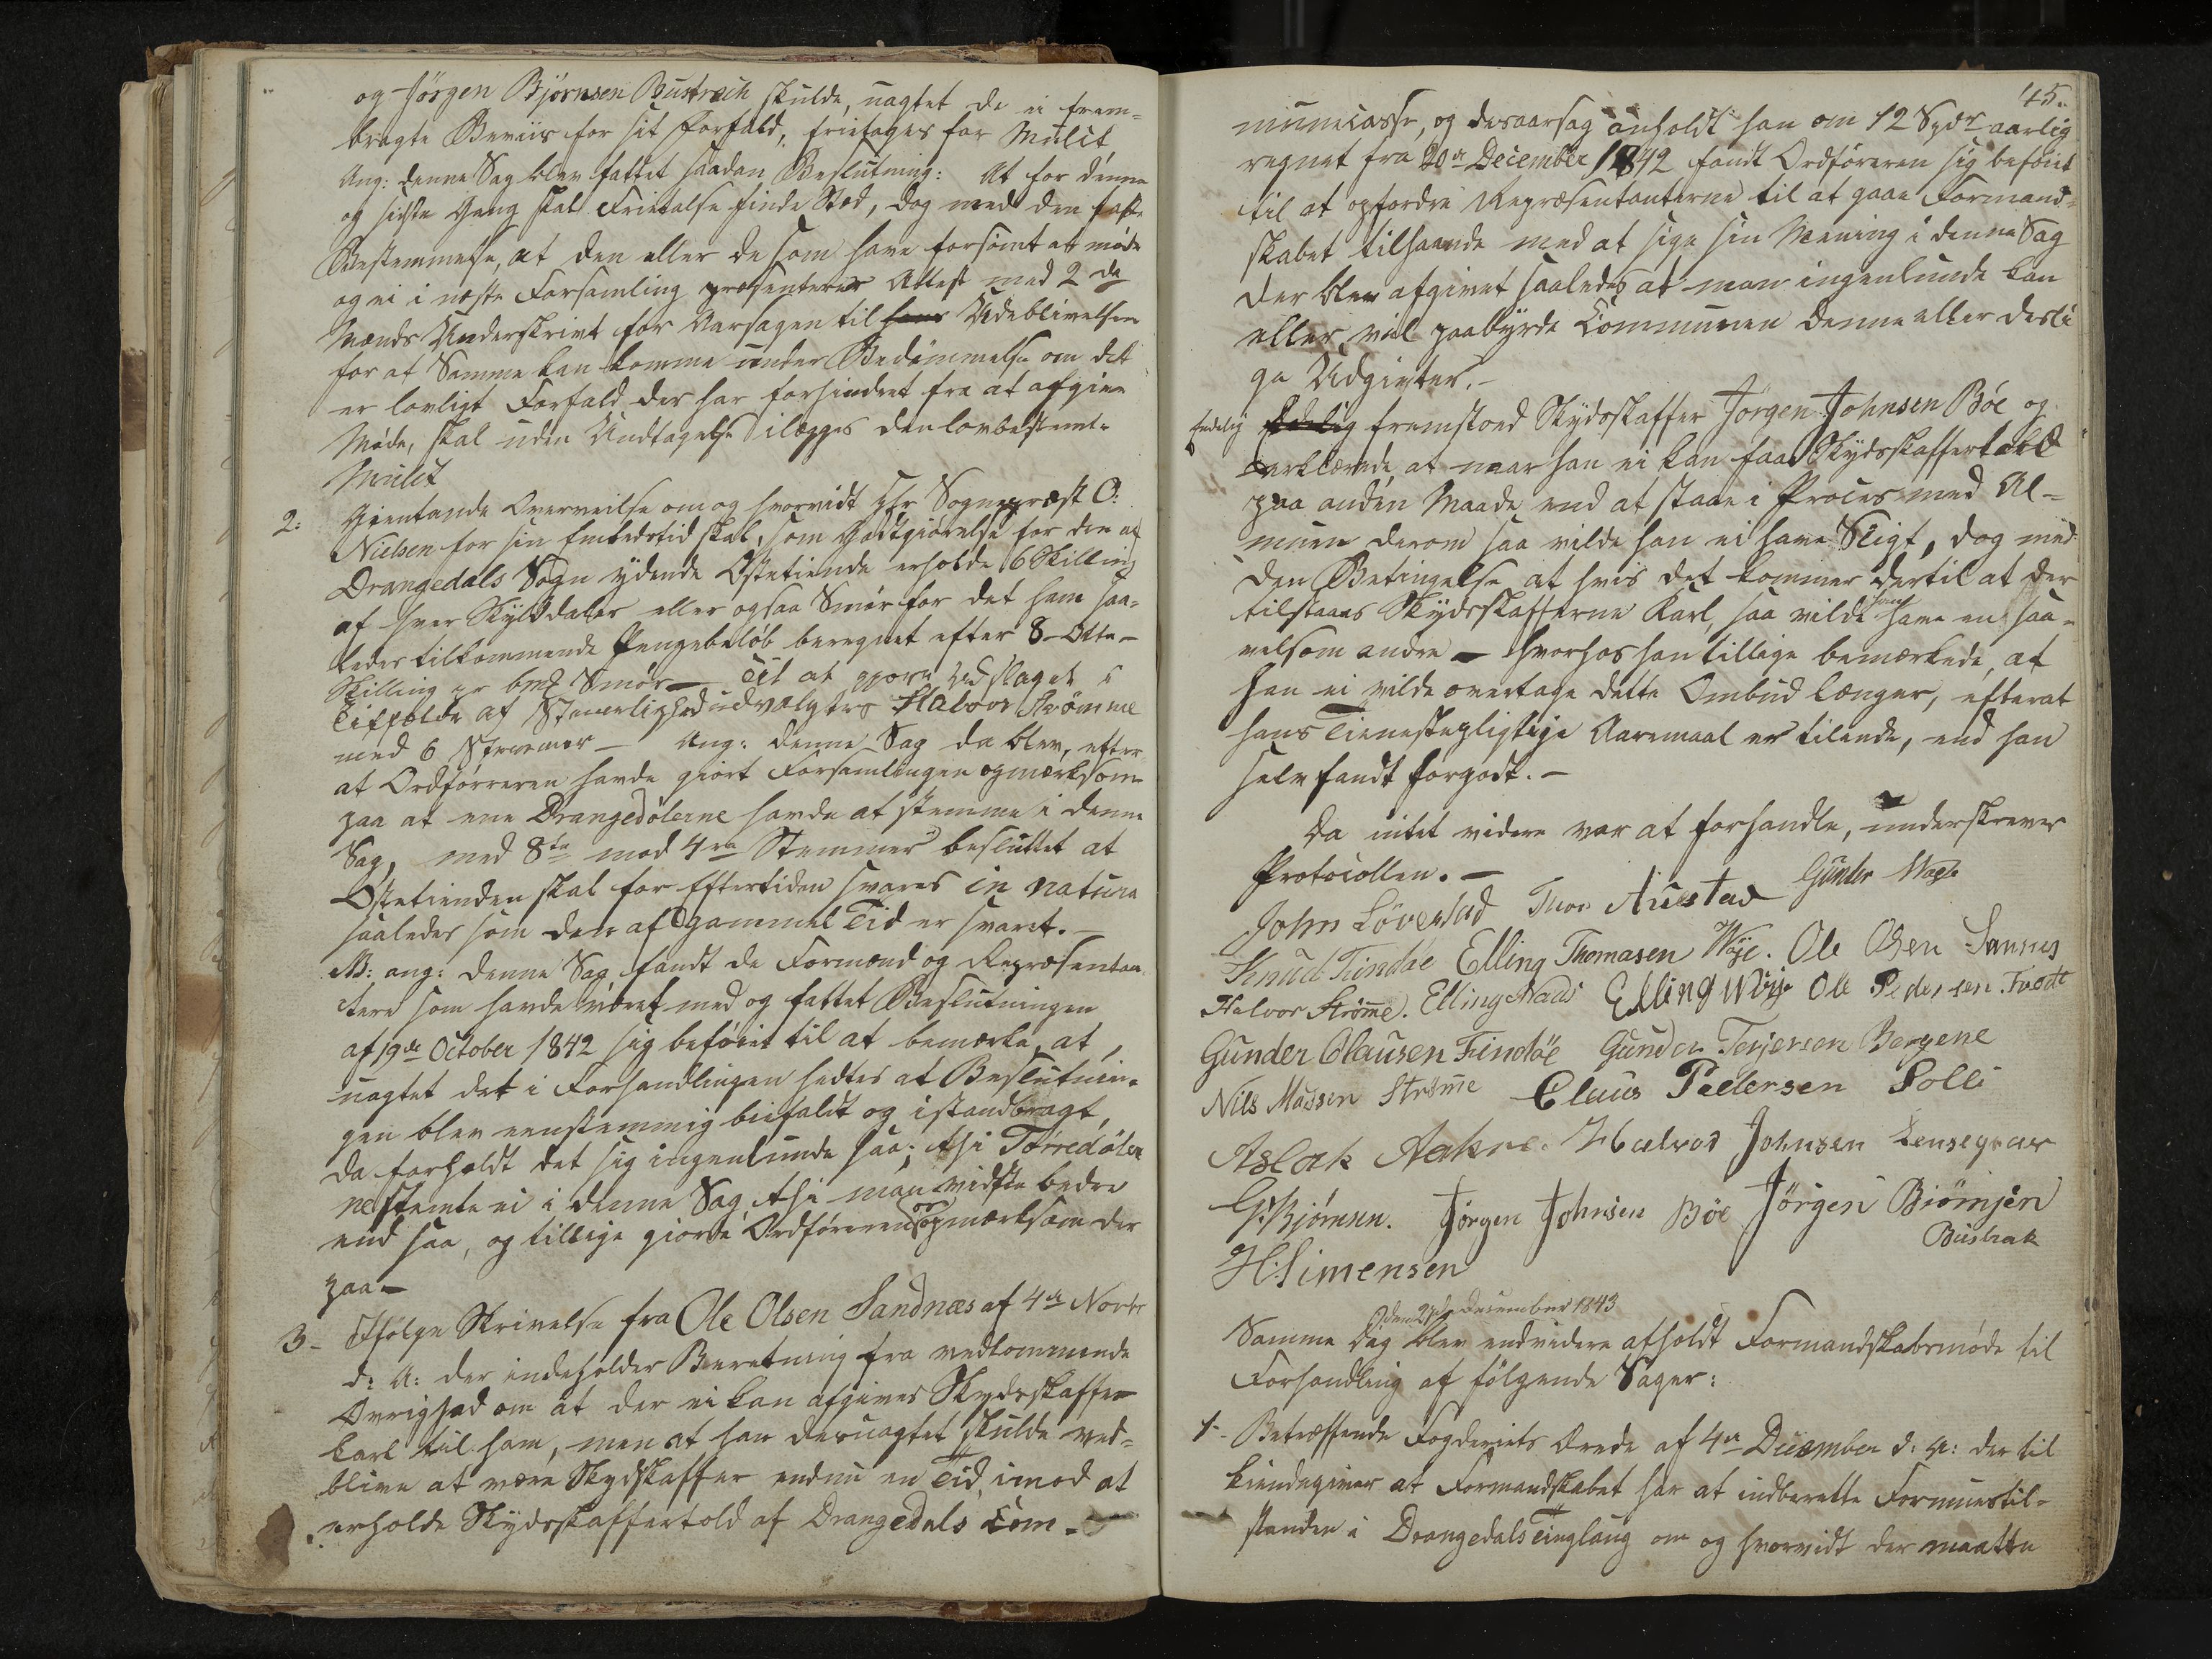 og Jörgen Björnsen Bustrach skulde, uagtet de ei frem-
bragte Beviis for sit Forfald, fritages for Mulct
Ang: denne Sag blev fattet saadan Beslutning: At for denne
og sidste Gang skal Fritalse finde Sted, dog med den faste
Bestemmelse, at den eller de som have forsömt at möde
og ei i næste Forsamling præsenterer Attest med 2de
Mænds Underskrivt for Aarsagen til hans Udeblivelse
for at Samme kan komme under Bedömmelse om det
er lovligt Forfald der har forhindret fra at afgive
Möde, skal uden Undtagelse ilægges den lovbestemte
Mulct
2: Gjentande Overveielse om og hvorvidt Hr Sognepræst O:
Nielsen for sin Embedstid skal, som Godtgiörelse for den af
Drangedals Sogn ydende Ostetiende erholde 6 Skilling
af hver Skylddaler eller ogsaa Smör for det ham saa-
ledes tilkommende Pengebelöb beregnet efter 8-Otte-
Skilling pr bmk Smör — Til at gjöre Udslaget i
Tilfælde af Stemmelighed udvalgtes Halvor Strömme
med 6 Stemmer — Ang: denne Sag da blev, efter
at Ordförreren havde giort Forsamlingen opmærksom
paa at ene Drangedölerne havde at stemme i denne
Sag, med 8te mod 4re Stemmer besluttet at
Ostetienden skal for Eftertiden svares in natura
saaledes som den af gammel Tid er svaret. —
NB: ang: denne Sag fandt de Formænd og Repræsentan-
tere som havde været med og fattet Beslutningen
af 19de October 1842 sig beföiet til at bemærke, at,
uagtet det i Forhandlingen hedtes at Beslutnin-
gen blev eenstemmig bifaldt og istandbragt,
da forholdt det sig ingenlunde saa; thi Törredöler
ne stemte ei i denne Sag thi man vidste bedre
end saa, og tillige giorde Ordföreren opmærksom der
paa —
3- Ifölge Skrivelse fra Ole Olsen Sandnæs af 4de Novbr
d: A: der indeholder Beretning fra vedkommende
Övrighed om at der ei kan afgives Skydsskaffer
karl til ham, men at han desuagtet skulde ved-
blive at være Skydskaffer endnu en Tid, imod at
erholde Skydsskaffertold af Drangedals Com-
45.
munecasse, og desaarsag anholdt han om 12 Spdr aarlig
regnet fra 20de December 1842 fandt Ordföreren sig beföiet
til at opfordre Repræsentanterne til at gaae Formand-
skabet tilhaande med at sige sin Mening i denne Sag
Der blev afgivet saaledes at man ingenlunde kan
eller vil paabyrde Communen denne eller desli
ge Udgivter. —
Endelig fremstoed Skydsskaffer Jörgen Johnsen Böe og
erklærede, at naar han ei kan faae Skydsskafferkarl
paa anden Maade end at staae i Proces med Al-
muen derom saa vilde han ei have Sligt, dog med
den Betingelse at hvis det kommer dertil at der
tilstaaes Skydsskafferne Karl, saa vilde han have en saa-
velsom andre — hvorhos han tillige bemærkede, at
han ei vilde overtage dette Ombud længer, efterat
hans Tienestepligtige Aaremaal er tilende, end han
selv fandt forgodt. —
Da intet videre var at forhandle, underskreves
Protocollen. —
John Lövestad Thor Austad Gunder Woje
Knud Tindöe Elling Thomasen Woje. Ole Olsen Sannes
Halvor Strömme. Elling Næss Elling Woje Ole Pedersen Tvedt
Gunder Clausen Findöe Gunder Terjersen Bergene
Nils Madsen Strömme Claus Pedersen Solli
Aslak Aakre. Halvor Johnsen Lensegrav
G: Björnsen. Jörgen Johnsen Böe Jörgen Biörnsen
Bustrak
H: Simensen
den 27de Desember 1843
Samme Dag blev endvidere afholdt Formandskabsmöde til
Forhandling af fölgende Sager:
1- Betræffende Fogderiets Brede af 4de December d: A: der til
kiendegiver at Formandskabet har at indberette Formuestil-
standen i Drangedals Tinglaug om og hvorvidt der maatte